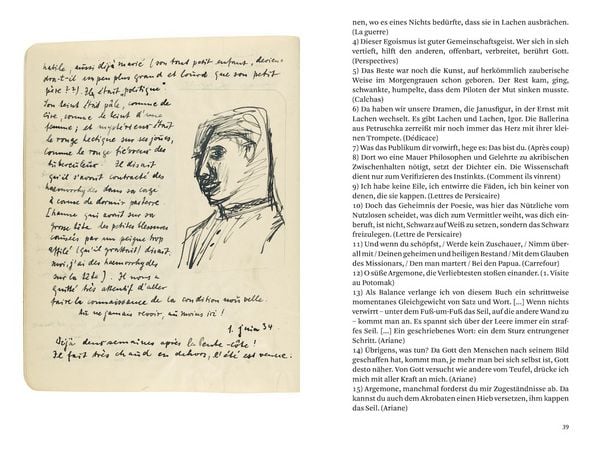 habile, aussi déjà marié (son tout petit enfant, devien-
dra-t-il un peu plus grand et lourd que son petit
père ??). Il était "politique".
Son teint était pâle, comme de
cire, comme le teint d'une
femme; et mystérieux était
le rouge hectique sur ses joues,
comme le rouge fiévreux des
tuberculeux. Il disait
qu'il s'avait contracté des
haemorrhydes dans sa cage
à cause de dormir par terre.
[L'autre qui avait sur sa
grosse tête des petites blessures
causées par un peigne trop
affilé (qui grattait) disait:
moi, j'ai des haemorrhydes
sur la tête]. Il nous a
quitté très attentif d'aller
faire la connaissance de la condition nouvelle.
Au ne jamais revoir, au moins ici!
1. juin 34.
Déjà deux semaines après la Pente-côte!
Il fait très chaud en dehors, l'été est venue.
nen, wo es eines Nichts bedürfte, dass sie in Lachen ausbrächen.
(La guerre)
4) Dieser Egoismus ist guter Gemeinschaftsgeist. Wer sich in sich
vertieft, hilft den anderen, offenbar, verbreitet, berührt Gott.
(Perspectives)
5) Das Beste war noch die Kunst, auf herkömmlich zauberische
Weise im Morgengrauen schon geboren. Der Rest kam, ging,
schwankte, humpelte, dass dem Piloten der Mut sinken musste.
(Calchas)
6) Da haben wir unsere Dramen, die Janusfigur, in der Ernst mit
Lachen wechselt. Es gibt Lachen und Lachen, Igor. Die Ballerina
aus Petruschka zerreißt mir noch immer das Herz mit ihrer klei-
nen Trompete. (Dédicace)
7) Was das Publikum dir vorwirft, hege es: Das bist du. (Après coup)
8) Dort wo eine Mauer Philosophen und Gelehrte zu akribischen
Zwischenhalten nötigt, setzt der Dichter ein. Die Wissenschaft
dient nur zum Verifizieren des Instinkts. (Comment ils virent)
9) Ich habe keine Eile, ich entwirre die Fäden, ich bin keiner von
denen, die sie kappen. (Lettres de Persicaire)
10) Doch das Geheimnis der Poesie, was hier das Nützliche vom
Nutzlosen scheidet, was dich zum Vermittler weiht, was dich ein-
beruft, ist nicht, Schwarz auf Weiß zu setzen, sondern das Schwarz
freizulegen. (Lettre de Persicaire)
11) Und wenn du schöpfst, / Werde kein Zuschauer, / Nimm über-
all mit / Deinen geheimen und heiligen Bestand / Mit dem Glauben
des Missionars, / Den man martert / Bei den Papua. (Carrefour)
12) O süße Argemone, die Verliebtesten stoßen einander. (1. Visite
au Potomak)
13) Als Balance verlange ich von diesem Buch ein schrittweise
momentanes Gleichgewicht von Satz und Wort. [...] Wenn nichts
verwirrt – unter dem Fuß-um-Fuß das Seil, auf die andere Wand zu
– kommt man an. Es spannt sich über der Leere immer ein straf-
fes Seil. [...] Ein geschriebenes Wort: ein dem Sturz entrungener
Schritt. (Ariane)
14) Übrigens, was tun? Da Gott den Menschen nach seinem Bild
geschaffen hat, kommt man, je mehr man bei sich selbst ist, Gott
desto näher. Von Gott versucht wie andere vom Teufel, drücke ich
mich mit aller Kraft an mich. (Ariane)
15) Argemone, manchmal forderst du mir Zugeständnisse ab. Da
kannst du auch dem Akrobaten einen Hieb versetzen, ihm kappen
das Seil. (Ariane)
39